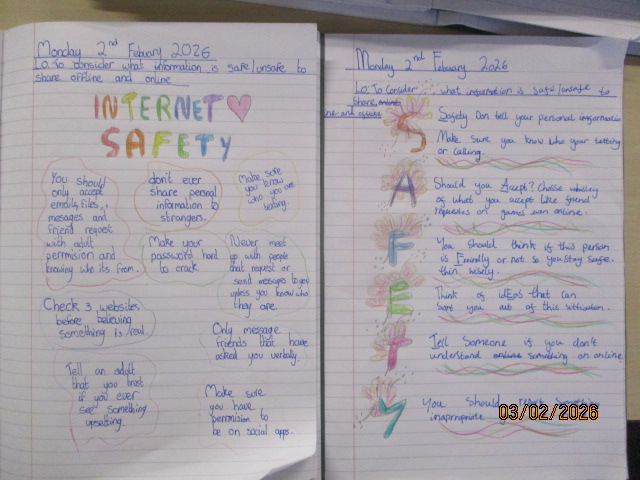 Monday 2nd Febuary 2026
LO: To consider what information is safe/unsafe to
share offline and online
INTERNET
SAFETY
You should
only accept
emails, files,
messages and
friend request
with adult
permision and
knowing who its from.
don't ever
share personal
information to
strangers.
Make sure
you know
who you are
texting.
Make your
password hard
to crack.
Never meet
up with people
that request or
send messages to you
unless you know who
they are.
Check 3 websites
before believing
something is real.
Only message
friends that have
asked you verbaly.
Tell an adult
that you trust
if you ever
see something
upsetting.
Make sure
you have
permission to
be on social apps.
Monday 2nd Febuary 2026
LO: To Consider what information is safe/unsafe to
share online
and
S
Safety Don tell your personal information
Make sure you know who your
or calling.
A
Should you Accept? Choose
of what you accept like friend
requests on games on online.
F
You should think if this person
is Friendly or not so you stay safe.
thin wisely.
E
Think of idEas that can
you out of this
T
Tell Someone if you don't
understand online something on online
Y
You Should report Something
inapropriate
03/02/2026